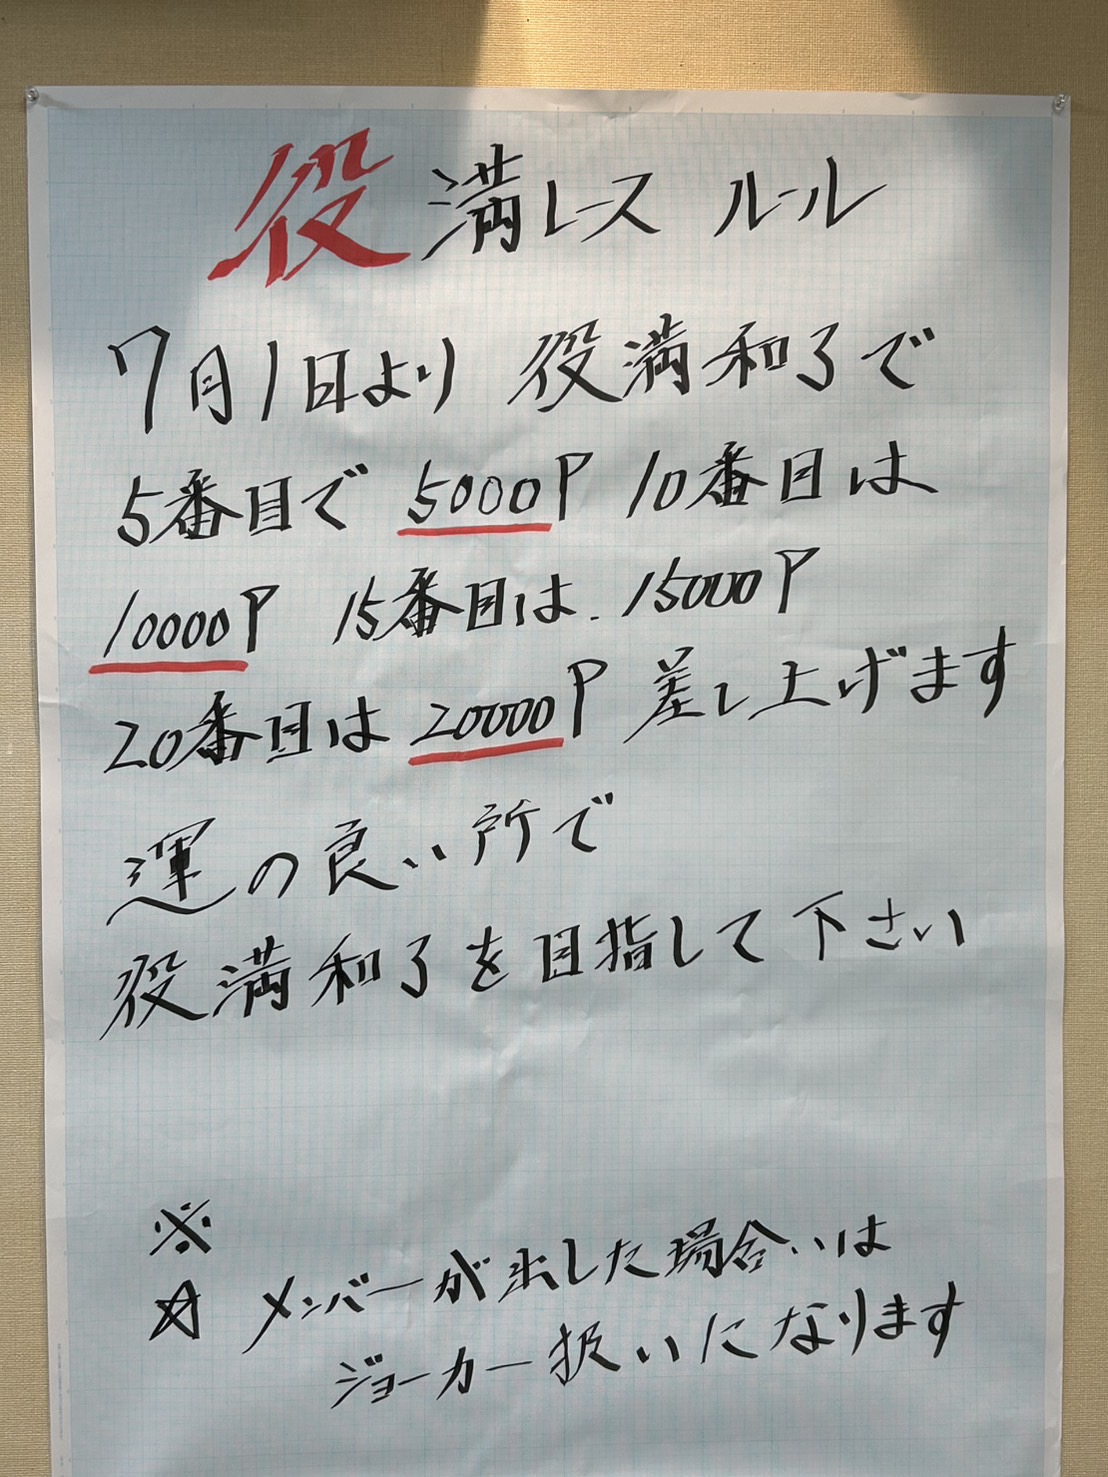 役満レース ルール
7月1日より 役満和了で
5番目で 5000P 10番目は
10000P 15番目は 15000P
20番目は 20000P 差し上げます
運の良い所で
役満和了を目指して下さい
※
☆ メンバーが出した場合いは
ジョーカー扱いになります